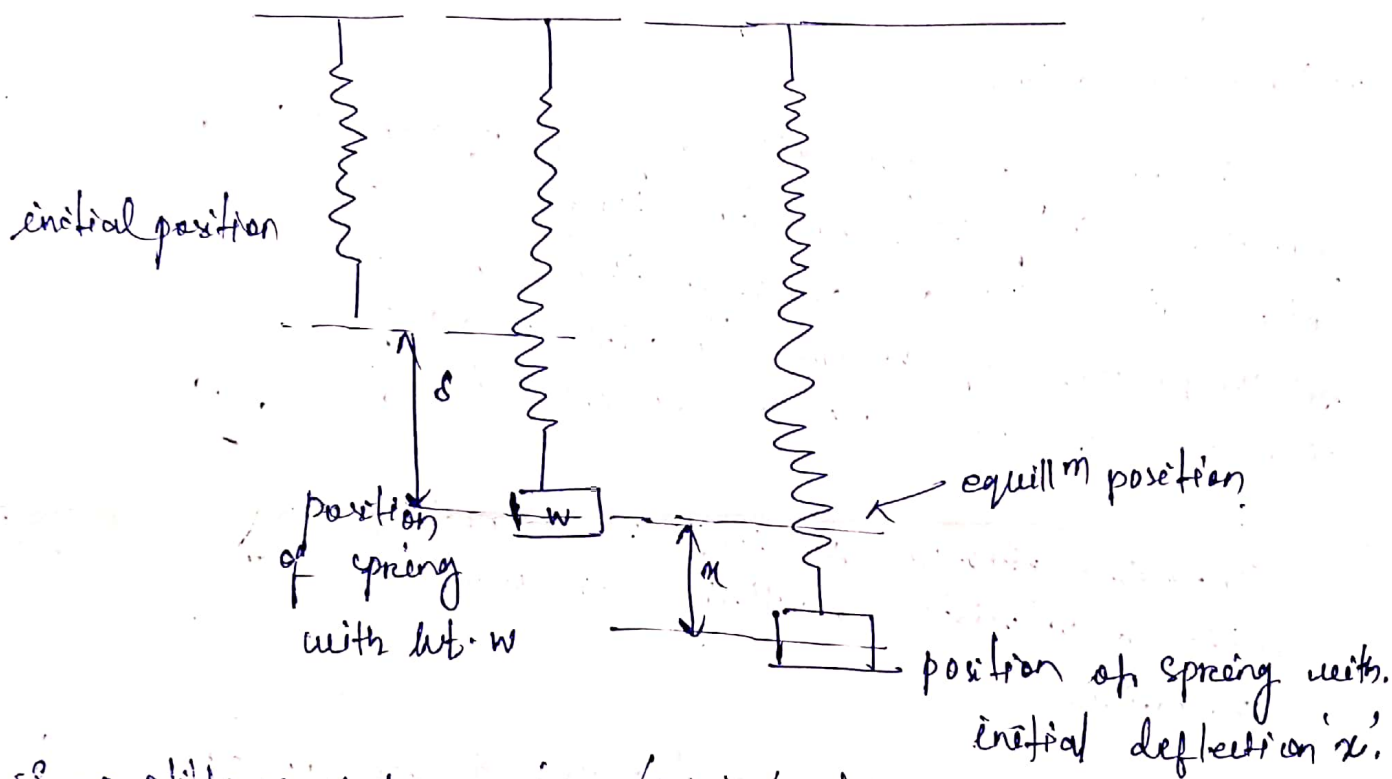 initial position
δ
position
of spring
with wt. W
W
equillm position
x
position of spring with.
initial deflection 'x'.